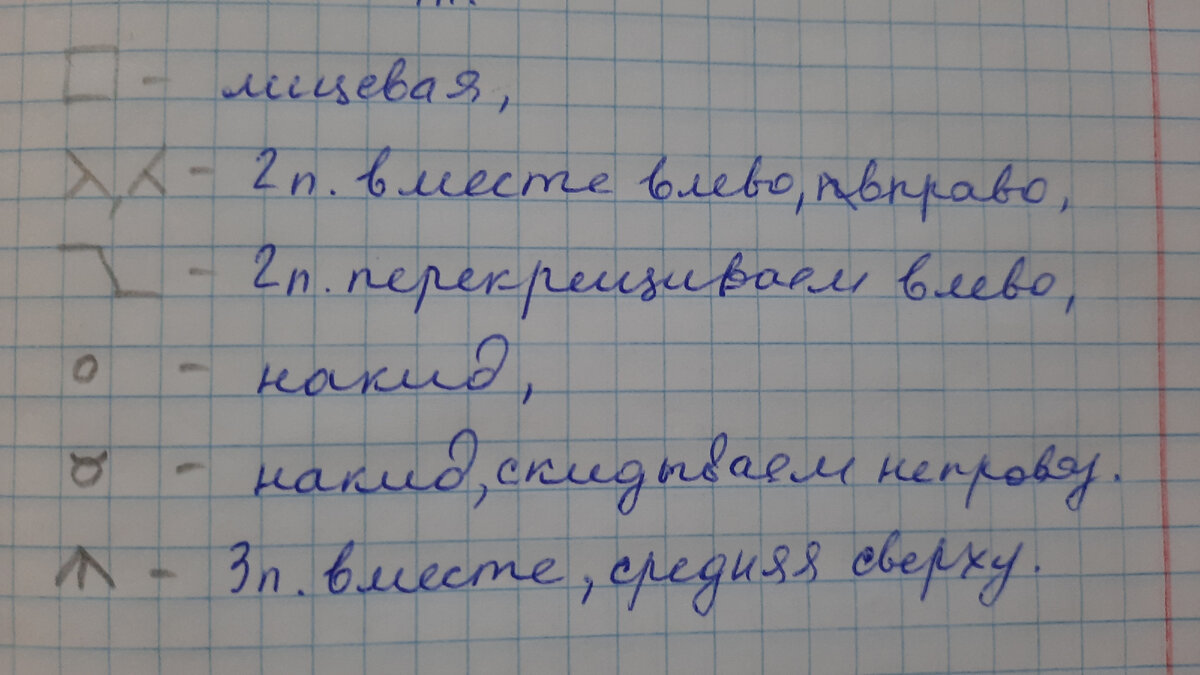 □ - лицевая,
⋋,⋌ - 2п. вместе влево, вправо,
- 2п. перекрещиваем влево,
о - накид,
- накид, скидываем непровяз.
- 3п. вместе, средняя сверху.